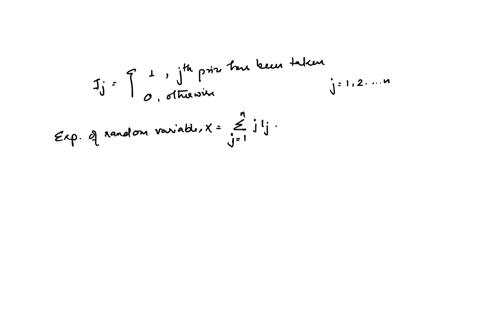 I_j = { 1, j^th prize have been taken
0, otherwise j = 1, 2 .... n
Exp. of random variable, X = \sum_{j=1}^{n} j I_j .